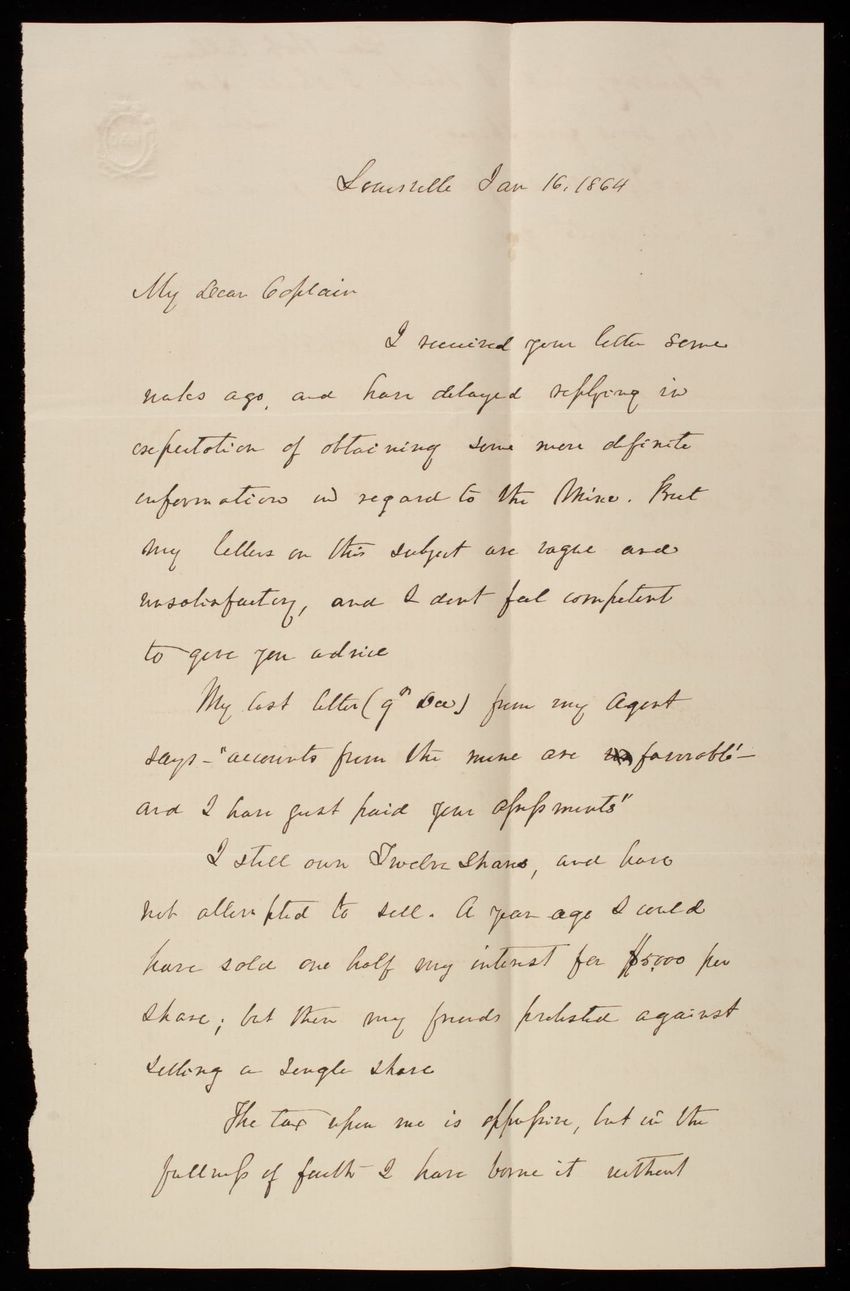 Louisville Jan 16, 1864
My Dear Captain
I received your letter some
weeks ago, and have delayed replying in
expectation of obtaining some more definite
information in regard to the Mine. But
my letters on this subject are vague and
unsatisfactory, and I dont feel competent
to give you advice
My last letter (9th Dec) from my Agent
says - "accounts from the mine are favorable -
and I have just paid your assessments"
I still own Twelve Shares, and have
not attempted to sell. A year ago I could
have sold one half my interest for $5,000 per
share; but then my friends protested against
selling a single share
The tax upon me is oppressive, but in the
fullness of faith I have borne it without